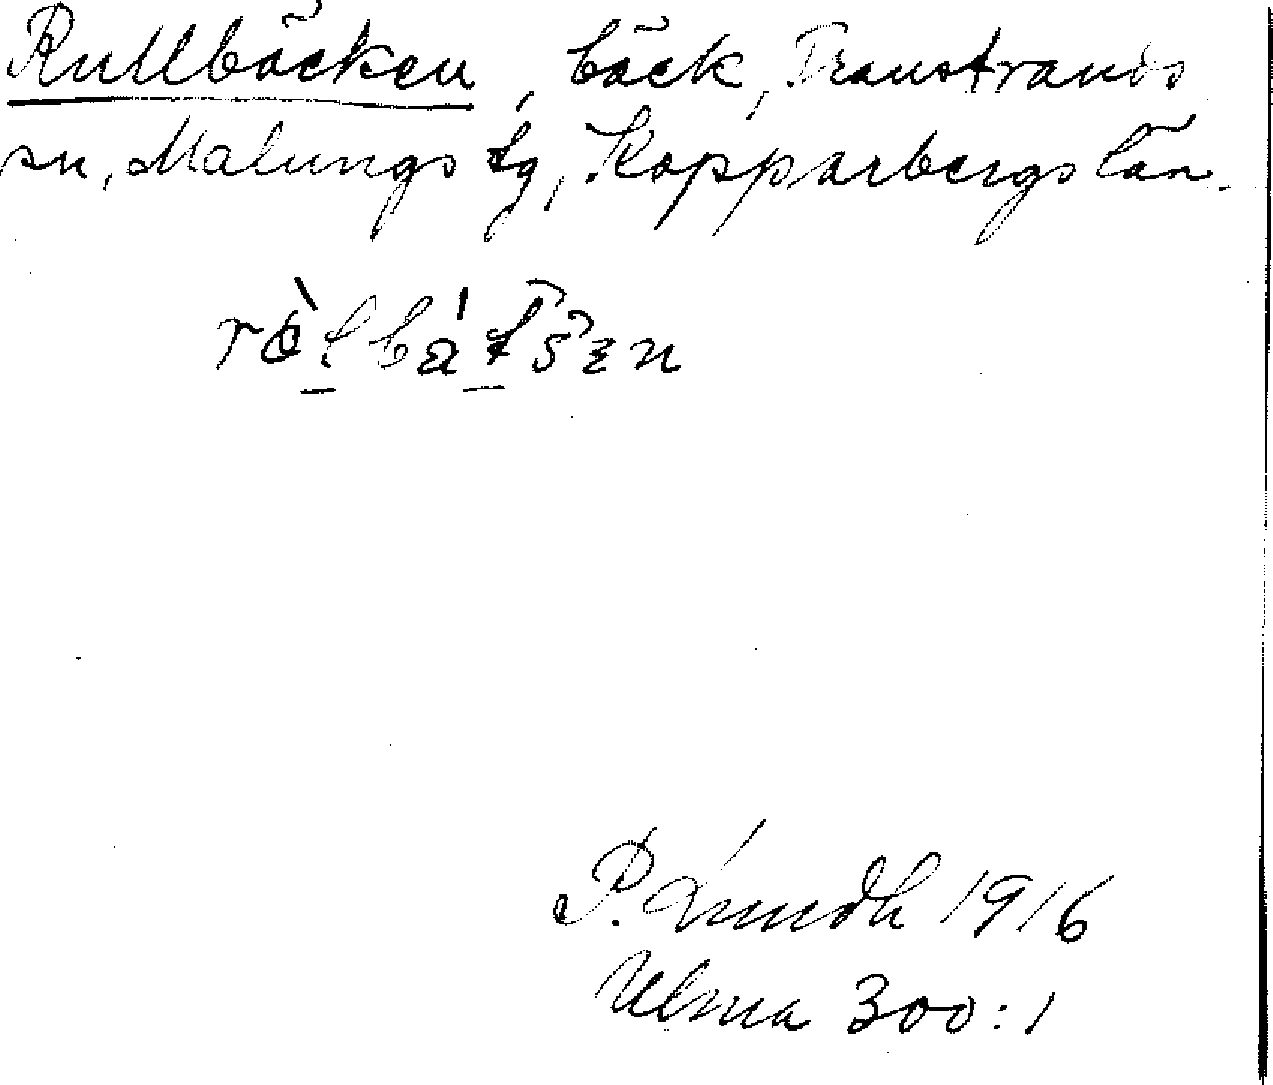 Rullbäcken, bäck, Transtrands
sn, Malungs tg, Kopparbergs län.
P. Lundh 1916
Ulma 300:1